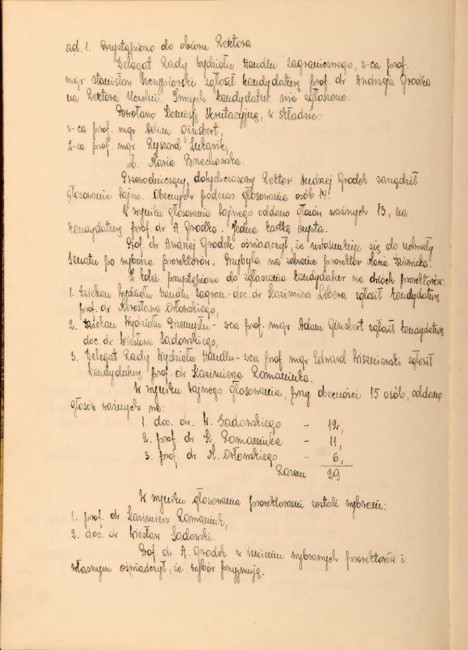 ad. 1. Przystąpiono do obioru Rektora
Delegat Rady Wydziału Handlu Zagranicznego, z-ca prof.
mgr Stanisław Szczypiorski zgłosił kandydaturę prof. dr Andrzeja Grodka
na Rektora Uczelni. Innych kandydatur nie zgłoszono.
Powołano Komisję Skrutacyjną, w składzie:
z-ca prof. mgr Adam Ginsbert,
z-ca prof. mgr Ryszard
Ob. Maria
Przewodniczący, dotychczasowy Rektor Andrzej Grodek zarządził
głosowanie tajne. Obecnych podczas głosowania osób 14.
W wyniku głosowania tajnego oddano głosów ważnych 13, na
kandydaturę prof. dr A. Grodka. Jedna kartka czysta.
Prof. dr Andrzej Grodek oświadczył, że ustosunkuje się do uchwały
Senatu po wyborze prorektorów. Przybyła na zebranie prorektor
Z kolei przystąpiono do zgłoszenia kandydatur na dwóch prorektorów:
1. Dziekan Wydziału Handlu Zagran. - doc. dr Kazimierz Libera zgłosił kandydaturę
prof. dr Mirosława Orłowskiego,
2. Dziekan Wydziału Przemysłu - zca prof. mgr Adam Ginsbert zgłosił kandydaturę
doc. dr Wiesława Sadowskiego,
3. Delegat Rady Wydziału Handlu - zca prof. mgr Edward Wiszniewski zgłosił
kandydaturę prof. dr Kazimierza Romaniuka.
W wyniku tajnego głosowania, przy obecności 15 osób, oddano
głosów ważnych na:
1. doc. dr. W. Sadowskiego - 12,
2. prof. dr K. Romaniuka - 11,
3. prof. dr M. Orłowskiego - 6,
Razem 29
W wyniku głosowania prorektorami zostali wybrani:
1. prof. dr Kazimierz Romaniuk,
2. doc. dr Wiesław Sadowski.
Prof. dr A. Grodek w imieniu wybranych prorektorów i
własnym oświadczył, że wybór przyjmują.